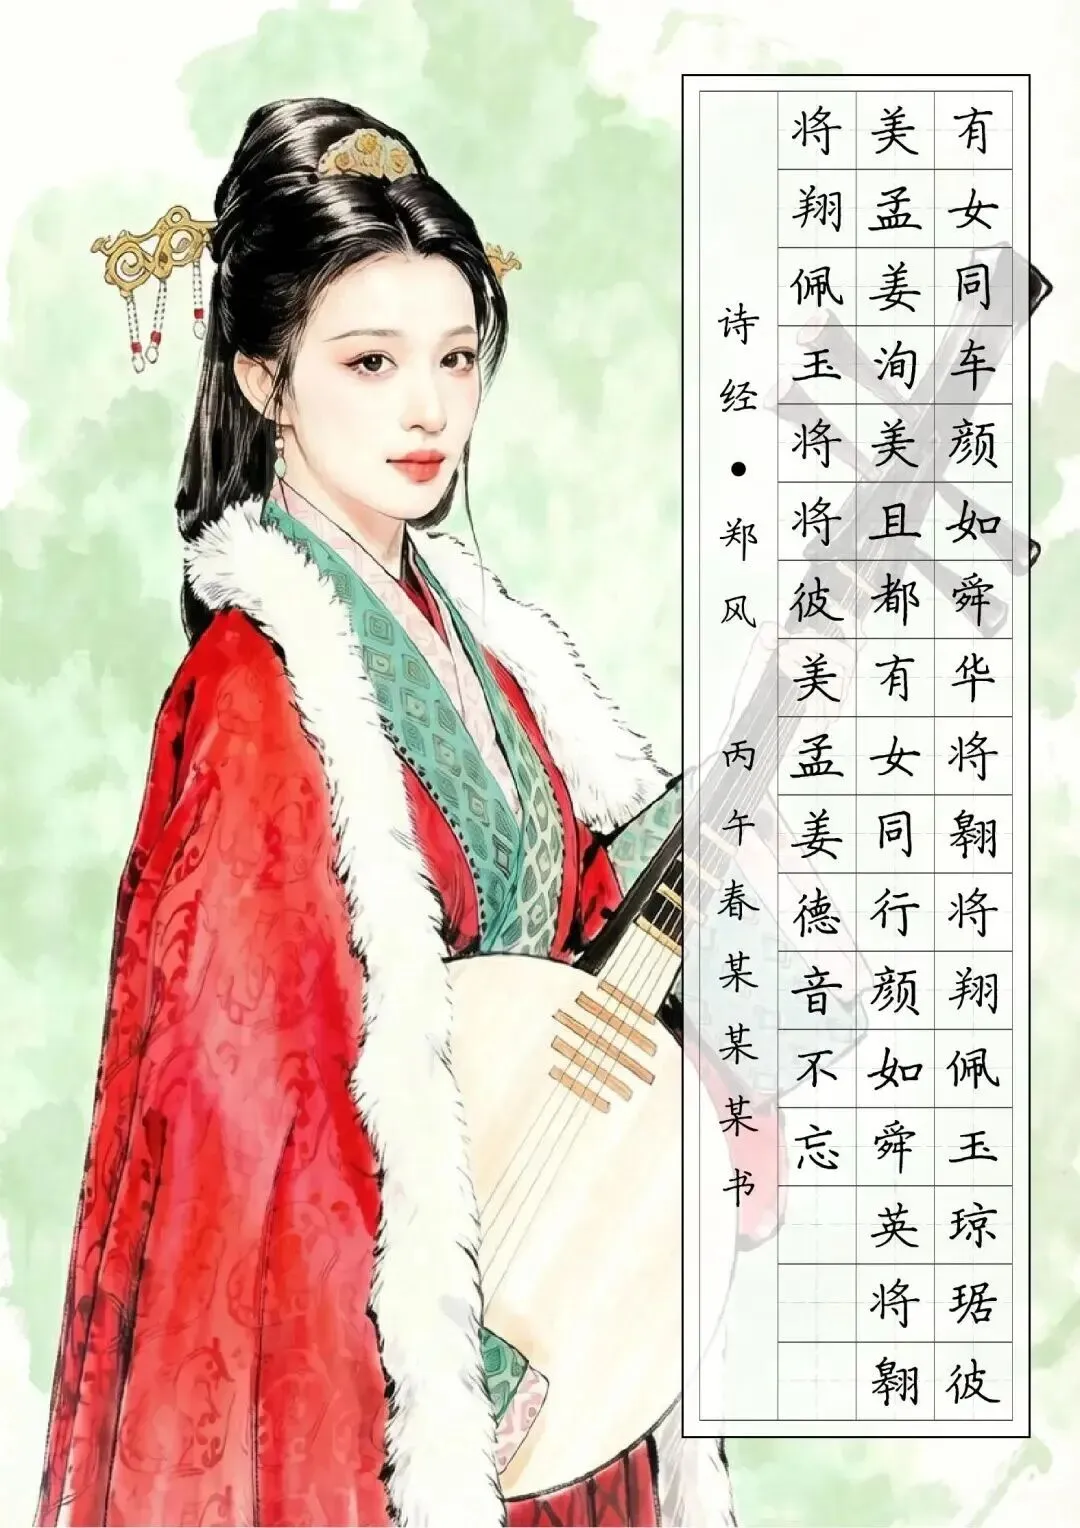 有女同车颜如舜华将翱将翔佩玉琼琚彼
美孟姜洵美且都有女同行颜如舜英将翱
将翔佩玉将将彼美孟姜德音不忘
诗经•郑风 丙午春某某某书